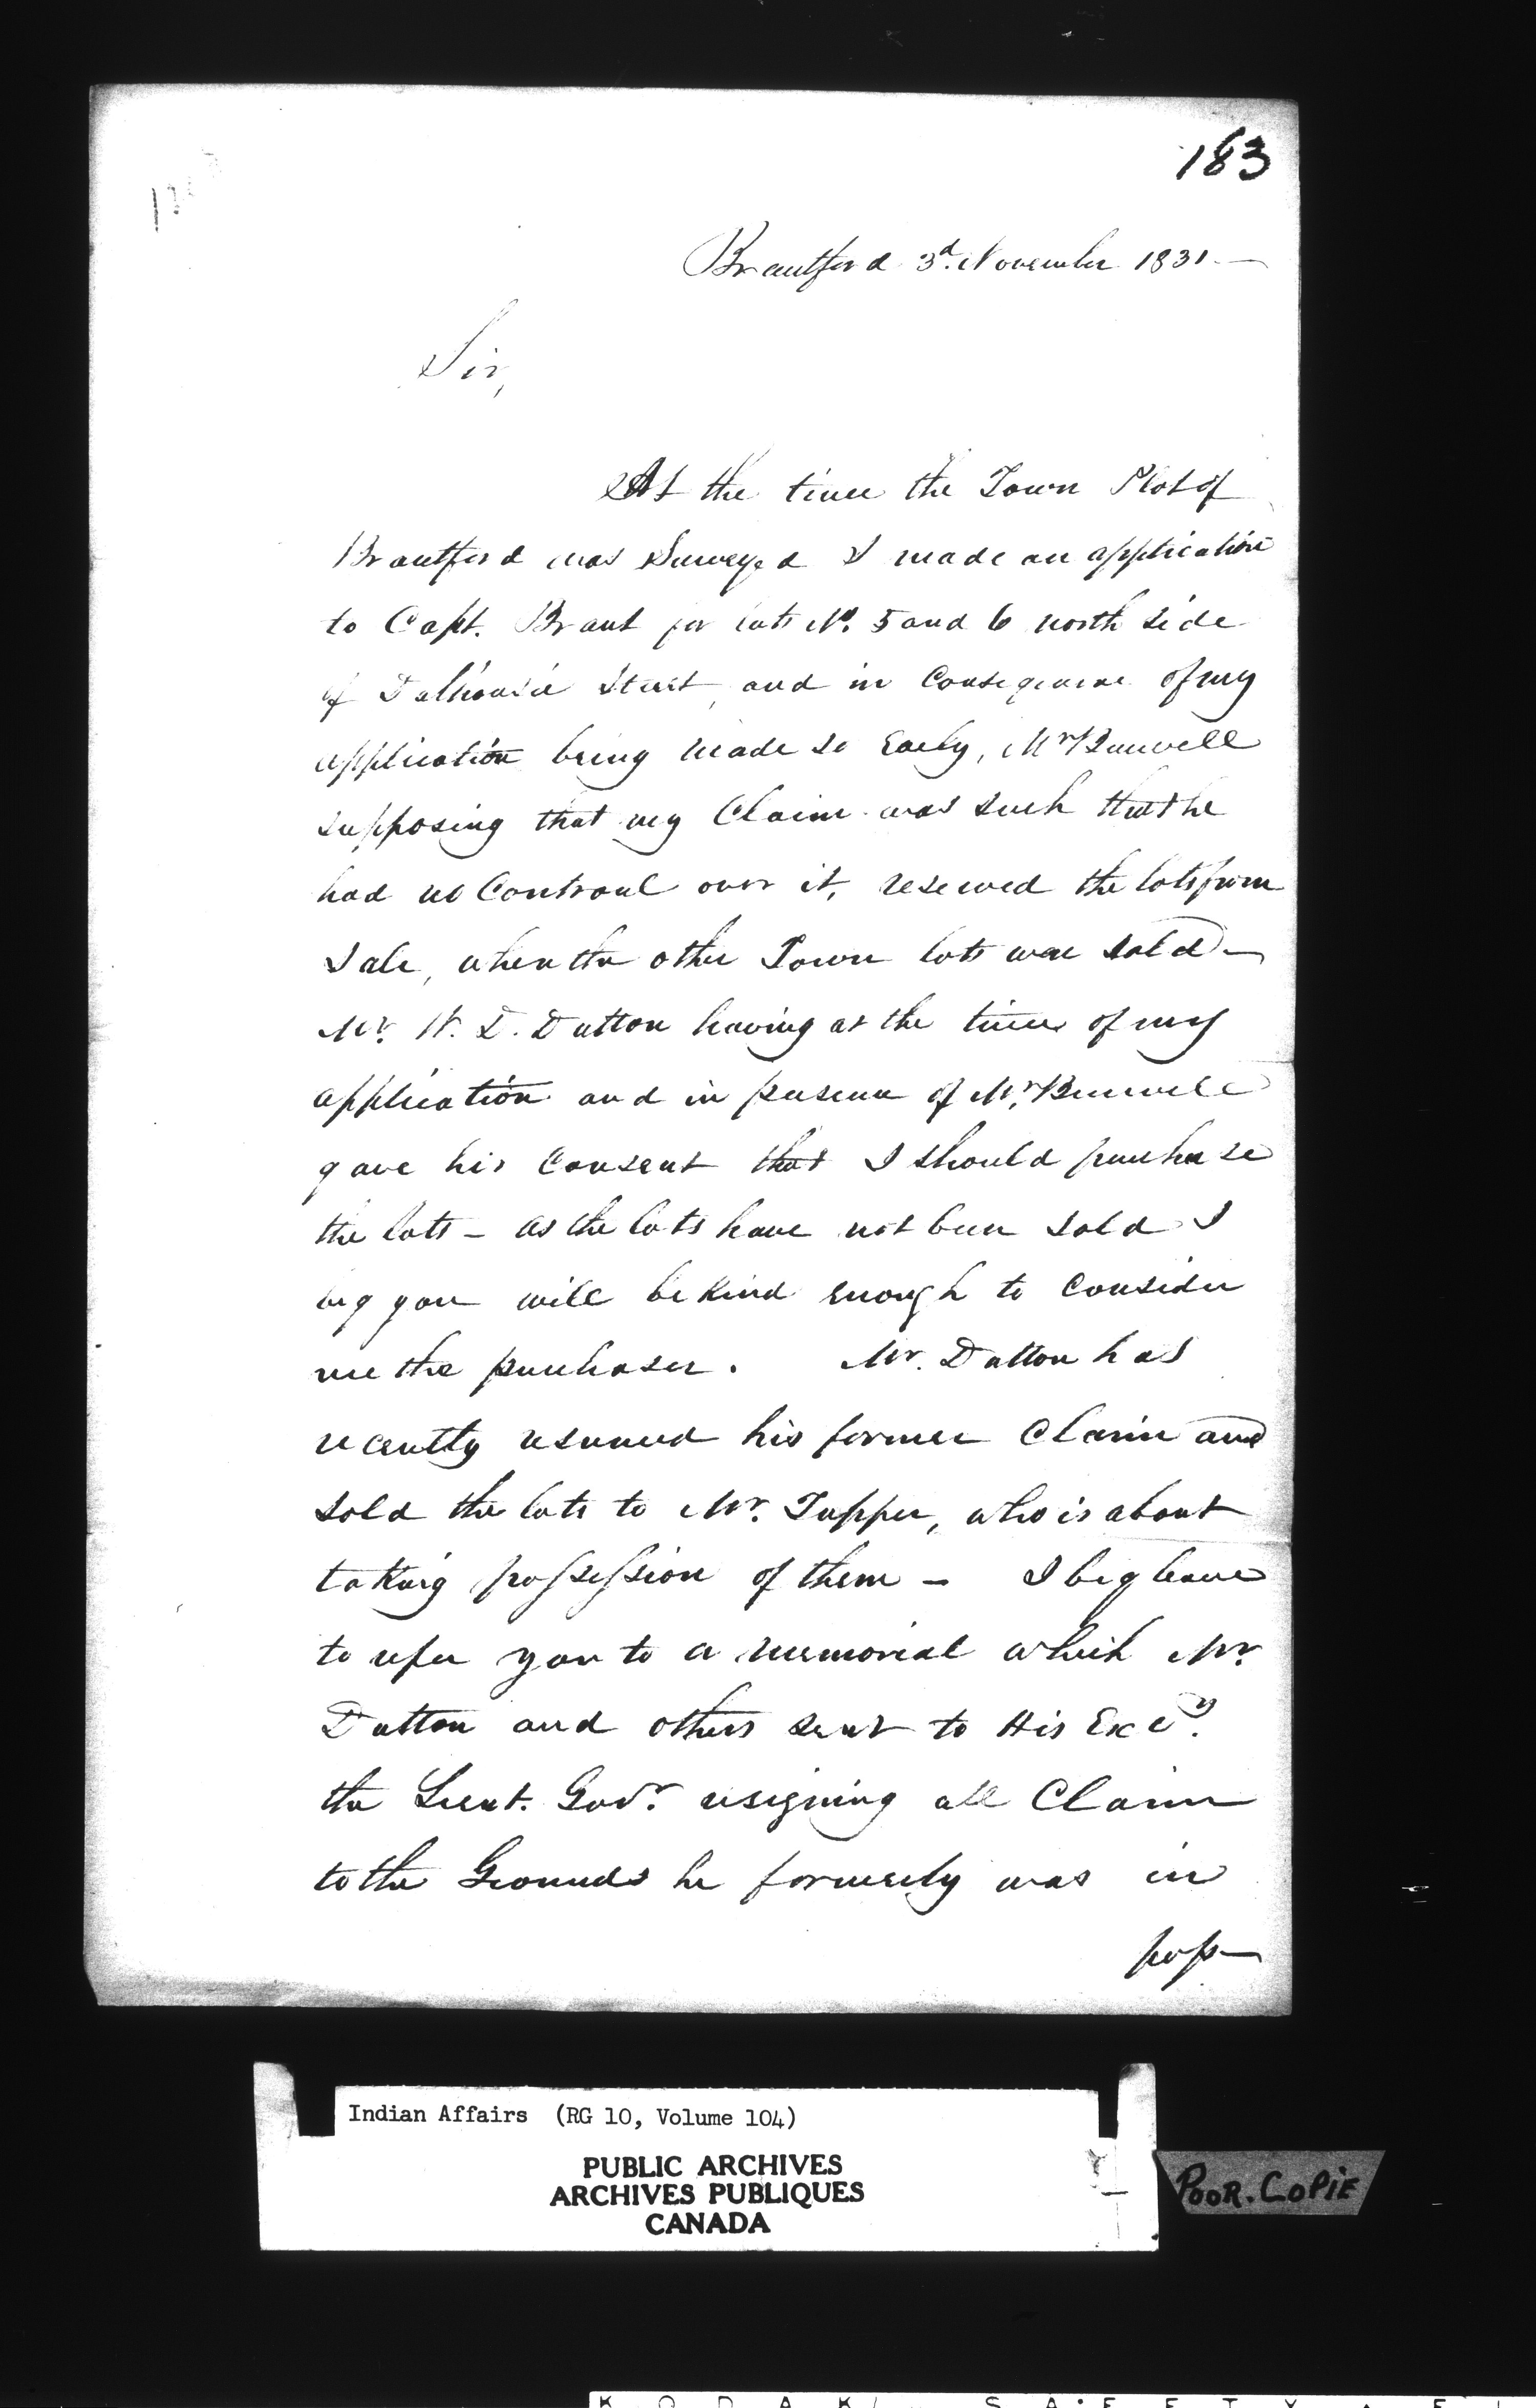 183
Brantford 3d. November 1831 —
Sir,
At the time the Town Plot of
Brantford was Surveyed I made an application
to Capt. Brant for lots No. 5 and 6 north side
of Dalhousie Street, and in Consequence of my
application being made so Early, Mr Burwell
supposing that my Claim was such that he
had no Controul over it, reserved the lots from
Sale, when the other Town lots were sold —
Mr. W. D. Dutton having at the time of my
application and in presence of Mr. Burwell
gave his Consent that I should purchase
the lots — as the lots have not been sold I
beg you will be Kind enough to Consider
me the purchaser. Mr. Dutton has
recently resumed his former Claim and
sold the lots to Mr. Tupper, who is about
taking possession of them — I beg leave
to refer you to a memorial which Mr.
Dutton and others sent to His Excy.
the Lieut. Govr. resigning all Claim
to the Grounds he formerly was in
poss—
Indian Affairs (RG 10, Volume 104)
PUBLIC ARCHIVES
ARCHIVES PUBLIQUES
CANADA
POOR. COPIE
KODAK SAFETY